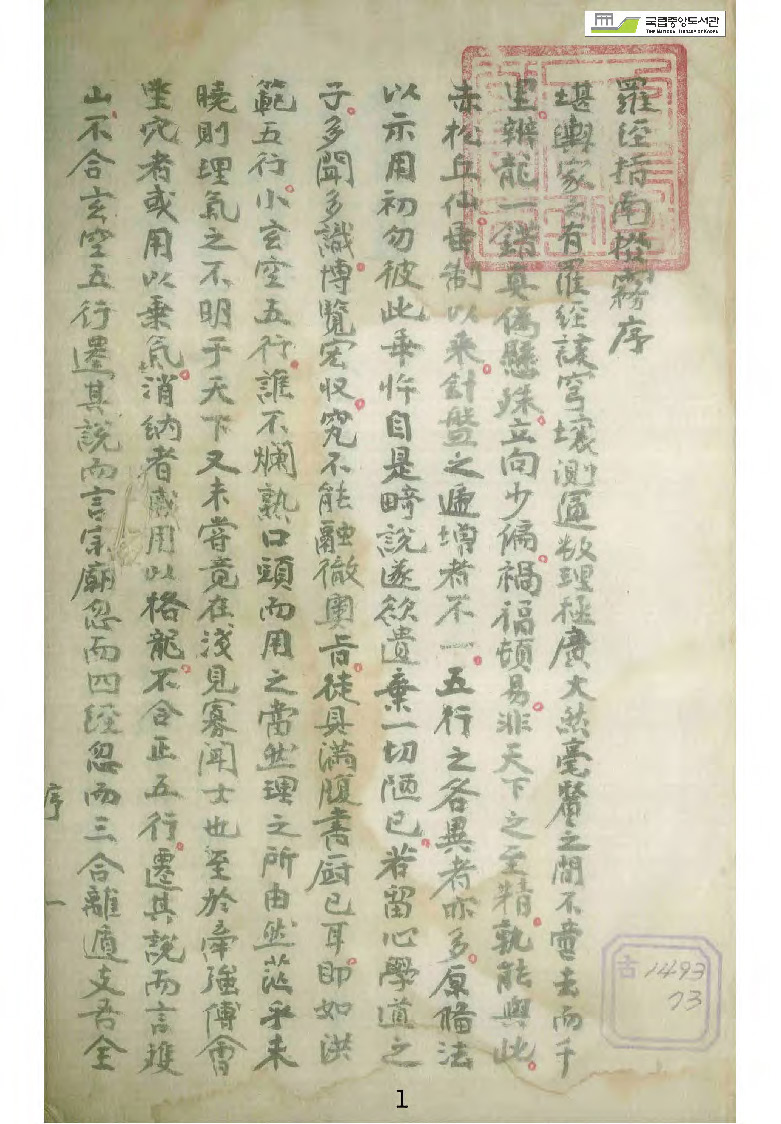 국립중앙도서관
THE NATIONAL LIBRARY OF KOREA
羅經指南撥霧序
堪輿家之有羅經該穹壤測運數理極廣大然毫釐之間不啻去而千
里辨龍一錯真偽懸殊立向少偏禍福頓易非天下之至精孰能與此
赤松丘仙番制以來針盤之遞增者不一五行之各異者亦多原脩法
以示用初勿彼此乖忤自是畸說遂欲遺棄一切陋已若留心學道之
子多聞多識博覽宏收究不能融徹奧旨徒具滿腹書厨已耳即如洪
範五行小玄空五行誰不爛熟口頭而用之當然理之所由然茫乎未
曉則理氣之不明于天下又未嘗竟在淺見寡聞士也至於牽強傅會
坐穴者或用以乗氣消納者或用以格龍不合正五行遷其說而言雙
山不合玄空五行遷其說而言宗廟忽而四經忽而三合離遁支吾全
序 一
古1493
73
1